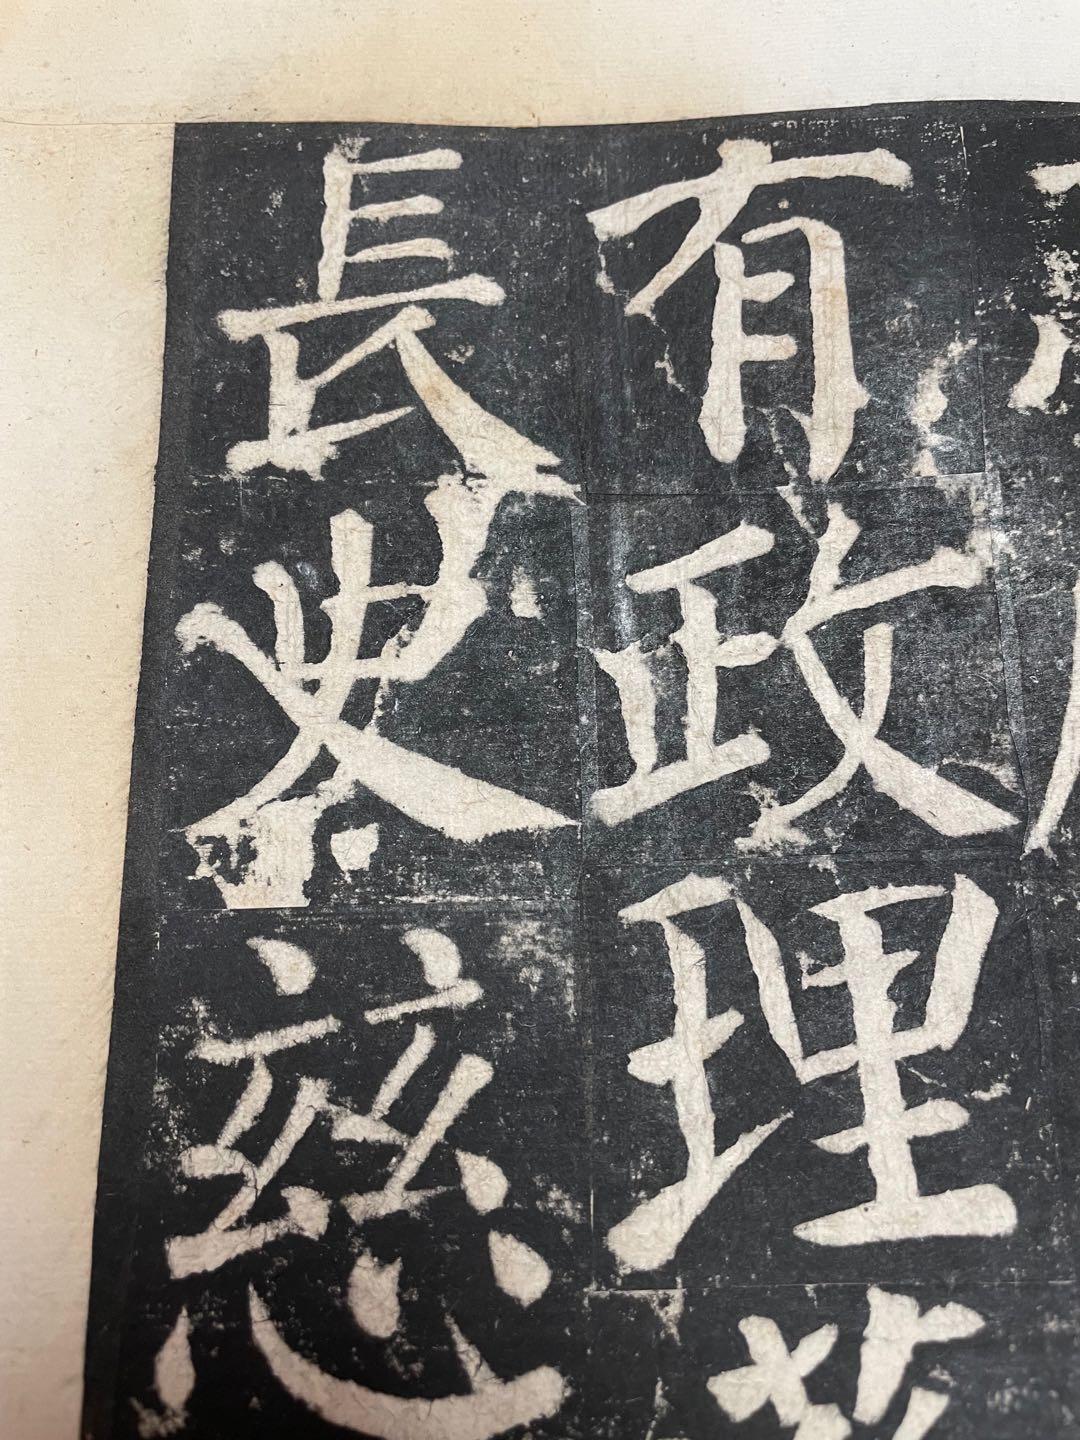 有政理
長史慈